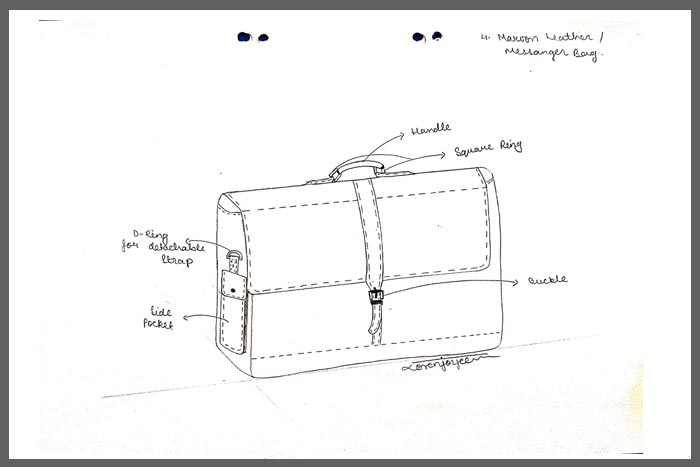 4. Maroon Leather /
Messanger Bag.
Handle
Square Ring
D-Ring
for detachable
Strap
Buckle
Side
Pocket